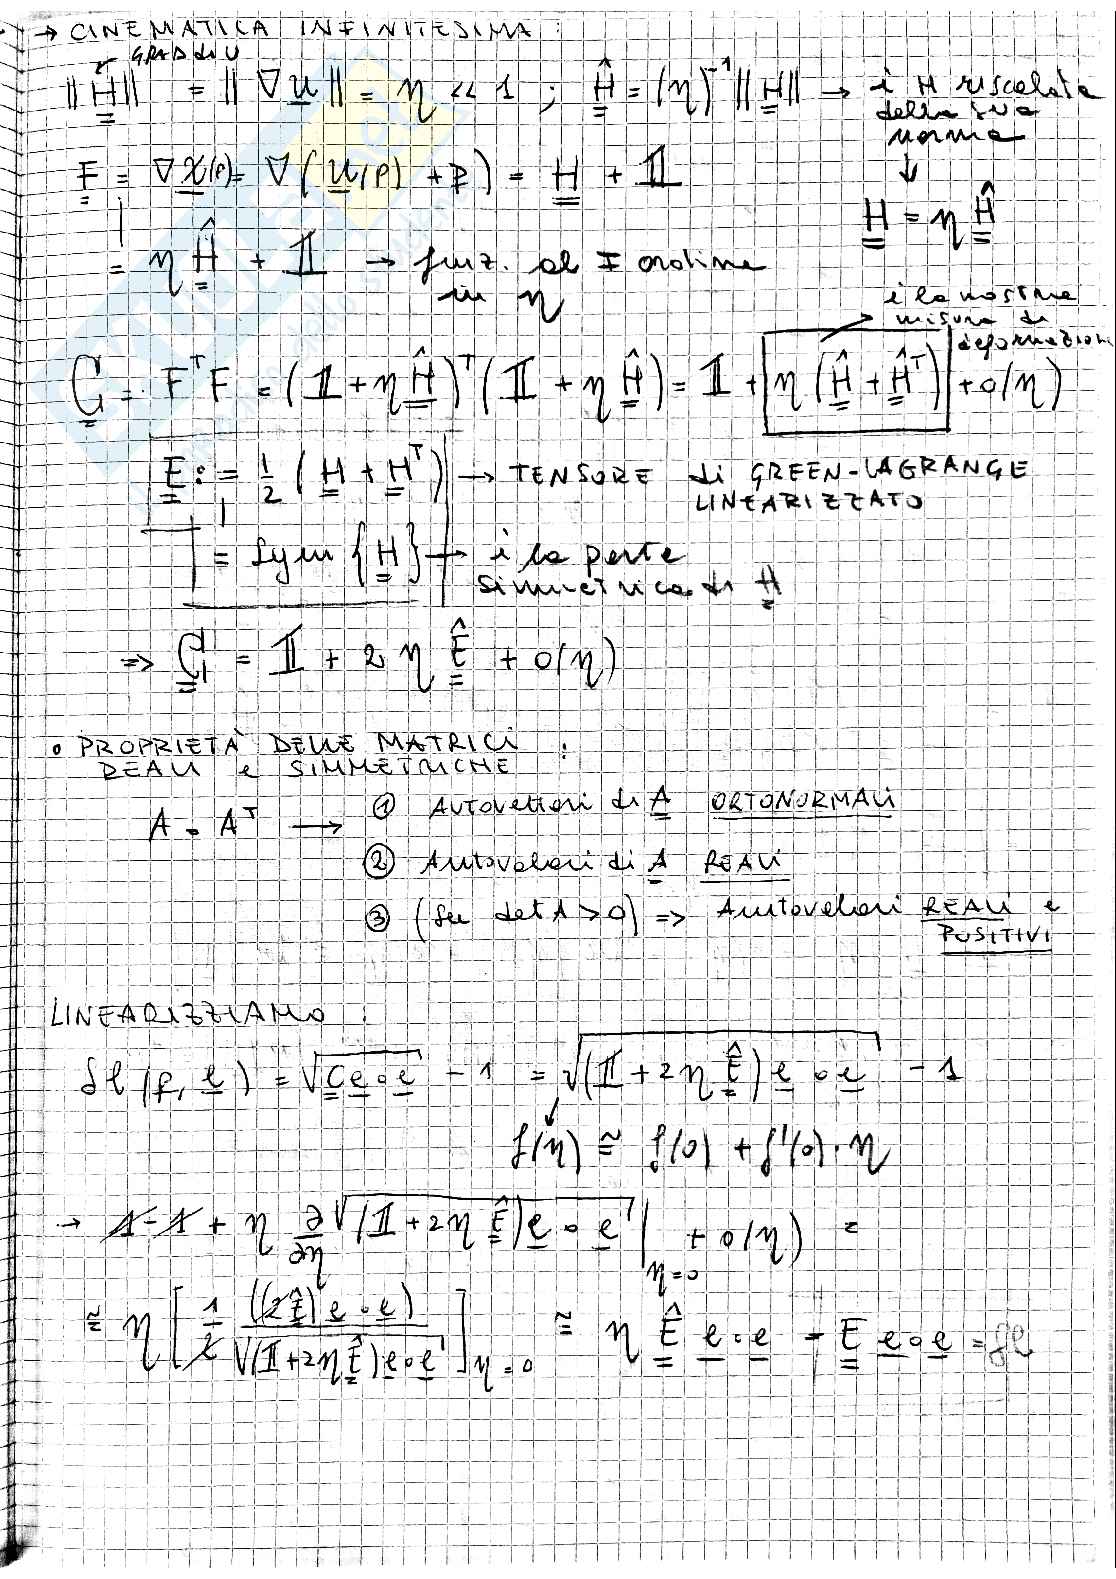 → CINEMATICA INFINITESIMA :
GRAD di U
‖H‖ = ‖∇u‖ = η << 1 ; Ĥ = (η)⁻¹‖H‖ → è H riscalata
della sua
norma
↓
F = ∇χ(p) = ∇(u(p) + p) = H + 𝟙
H = ηĤ
= ηĤ + 𝟙 → funz. al I ordine
in η
è la nostra
misura di
deformazioni
C = FᵀF = (𝟙 + ηĤ)ᵀ(𝟙 + ηĤ) = 𝟙 + η(Ĥ + Ĥᵀ) + o(η)
E := 1/2 (H + Hᵀ) → TENSORE di GREEN-LAGRANGE
LINEARIZZATO
= Sym {H} → è la parte
simmetrica di H
=> C = 𝟙 + 2ηÊ + o(η)
• PROPRIETÀ DELLE MATRICI
REALI e SIMMETRICHE :
A = Aᵀ → ① Autovettori di A ORTONORMALI
② Autovalori di A REALI
③ (Se det A > 0) => Autovalori REALI e
POSITIVI
LINEARIZZIAMO :
δl(p, e) = √(Ce∘e) - 1 = √((𝟙 + 2ηÊ)e∘e) - 1
f(η) ≅ f(0) + f'(0)·η
→ 1-1 + η ∂/∂η √((𝟙 + 2ηÊ)e∘e) |η=0 + o(η) =
≅ η [1/2 ((2Ê)e∘e) / √((𝟙+2ηÊ)e∘e)]η=0 ≅ ηÊe∘e = Ee∘e = δl